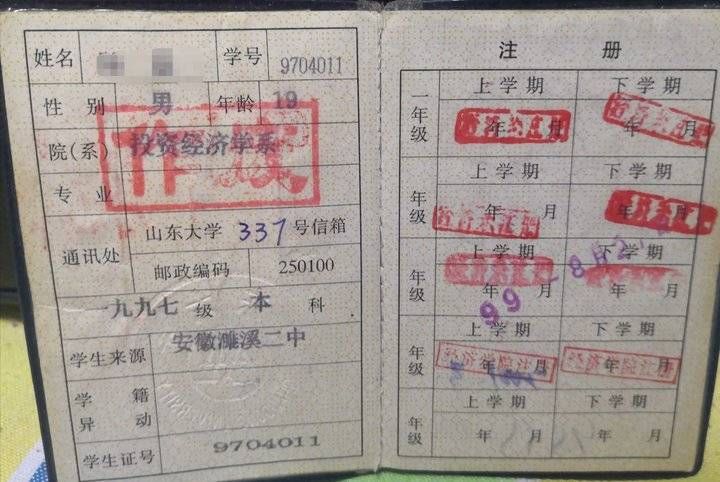 姓名 学号 9704011
性别 男 年龄 19
院(系) 投资经济学系
专业
作废
通讯处 山东大学 337 号信箱
邮政编码 250100
一九九七 级 本 科
学生来源 安徽濉溪二中
学籍异动
学生证号 9704011
注册
一年级 上学期 下学期
年 月 年 月
年级 上学期 下学期
年 月 年 月
年级 上学期 下学期
年 月 年 月
年级 上学期 下学期
年 月 年 月
年级 上学期 下学期
年 月 年 月